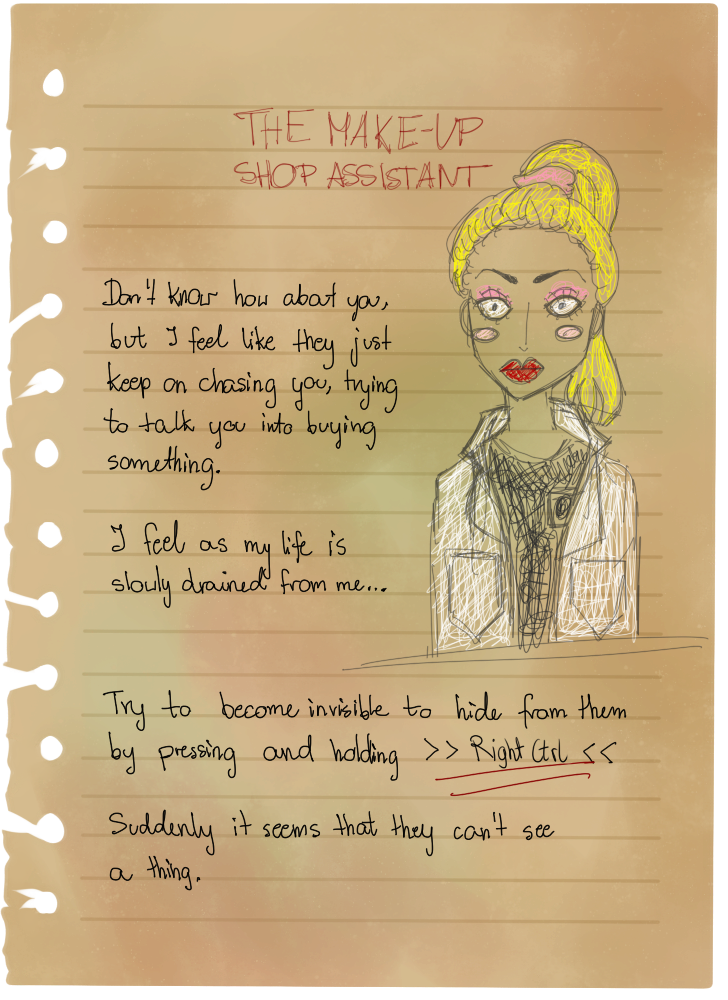 THE MAKE-UP
SHOP ASSISTANT
Don't know how about you,
but I feel like they just
keep on chasing you, trying
to talk you into buying
something.
I feel as my life is
slowly drained from me...
Try to become invisible to hide from them
by pressing and holding >> Right Ctrl <<
Suddenly it seems that they can't see
a thing.